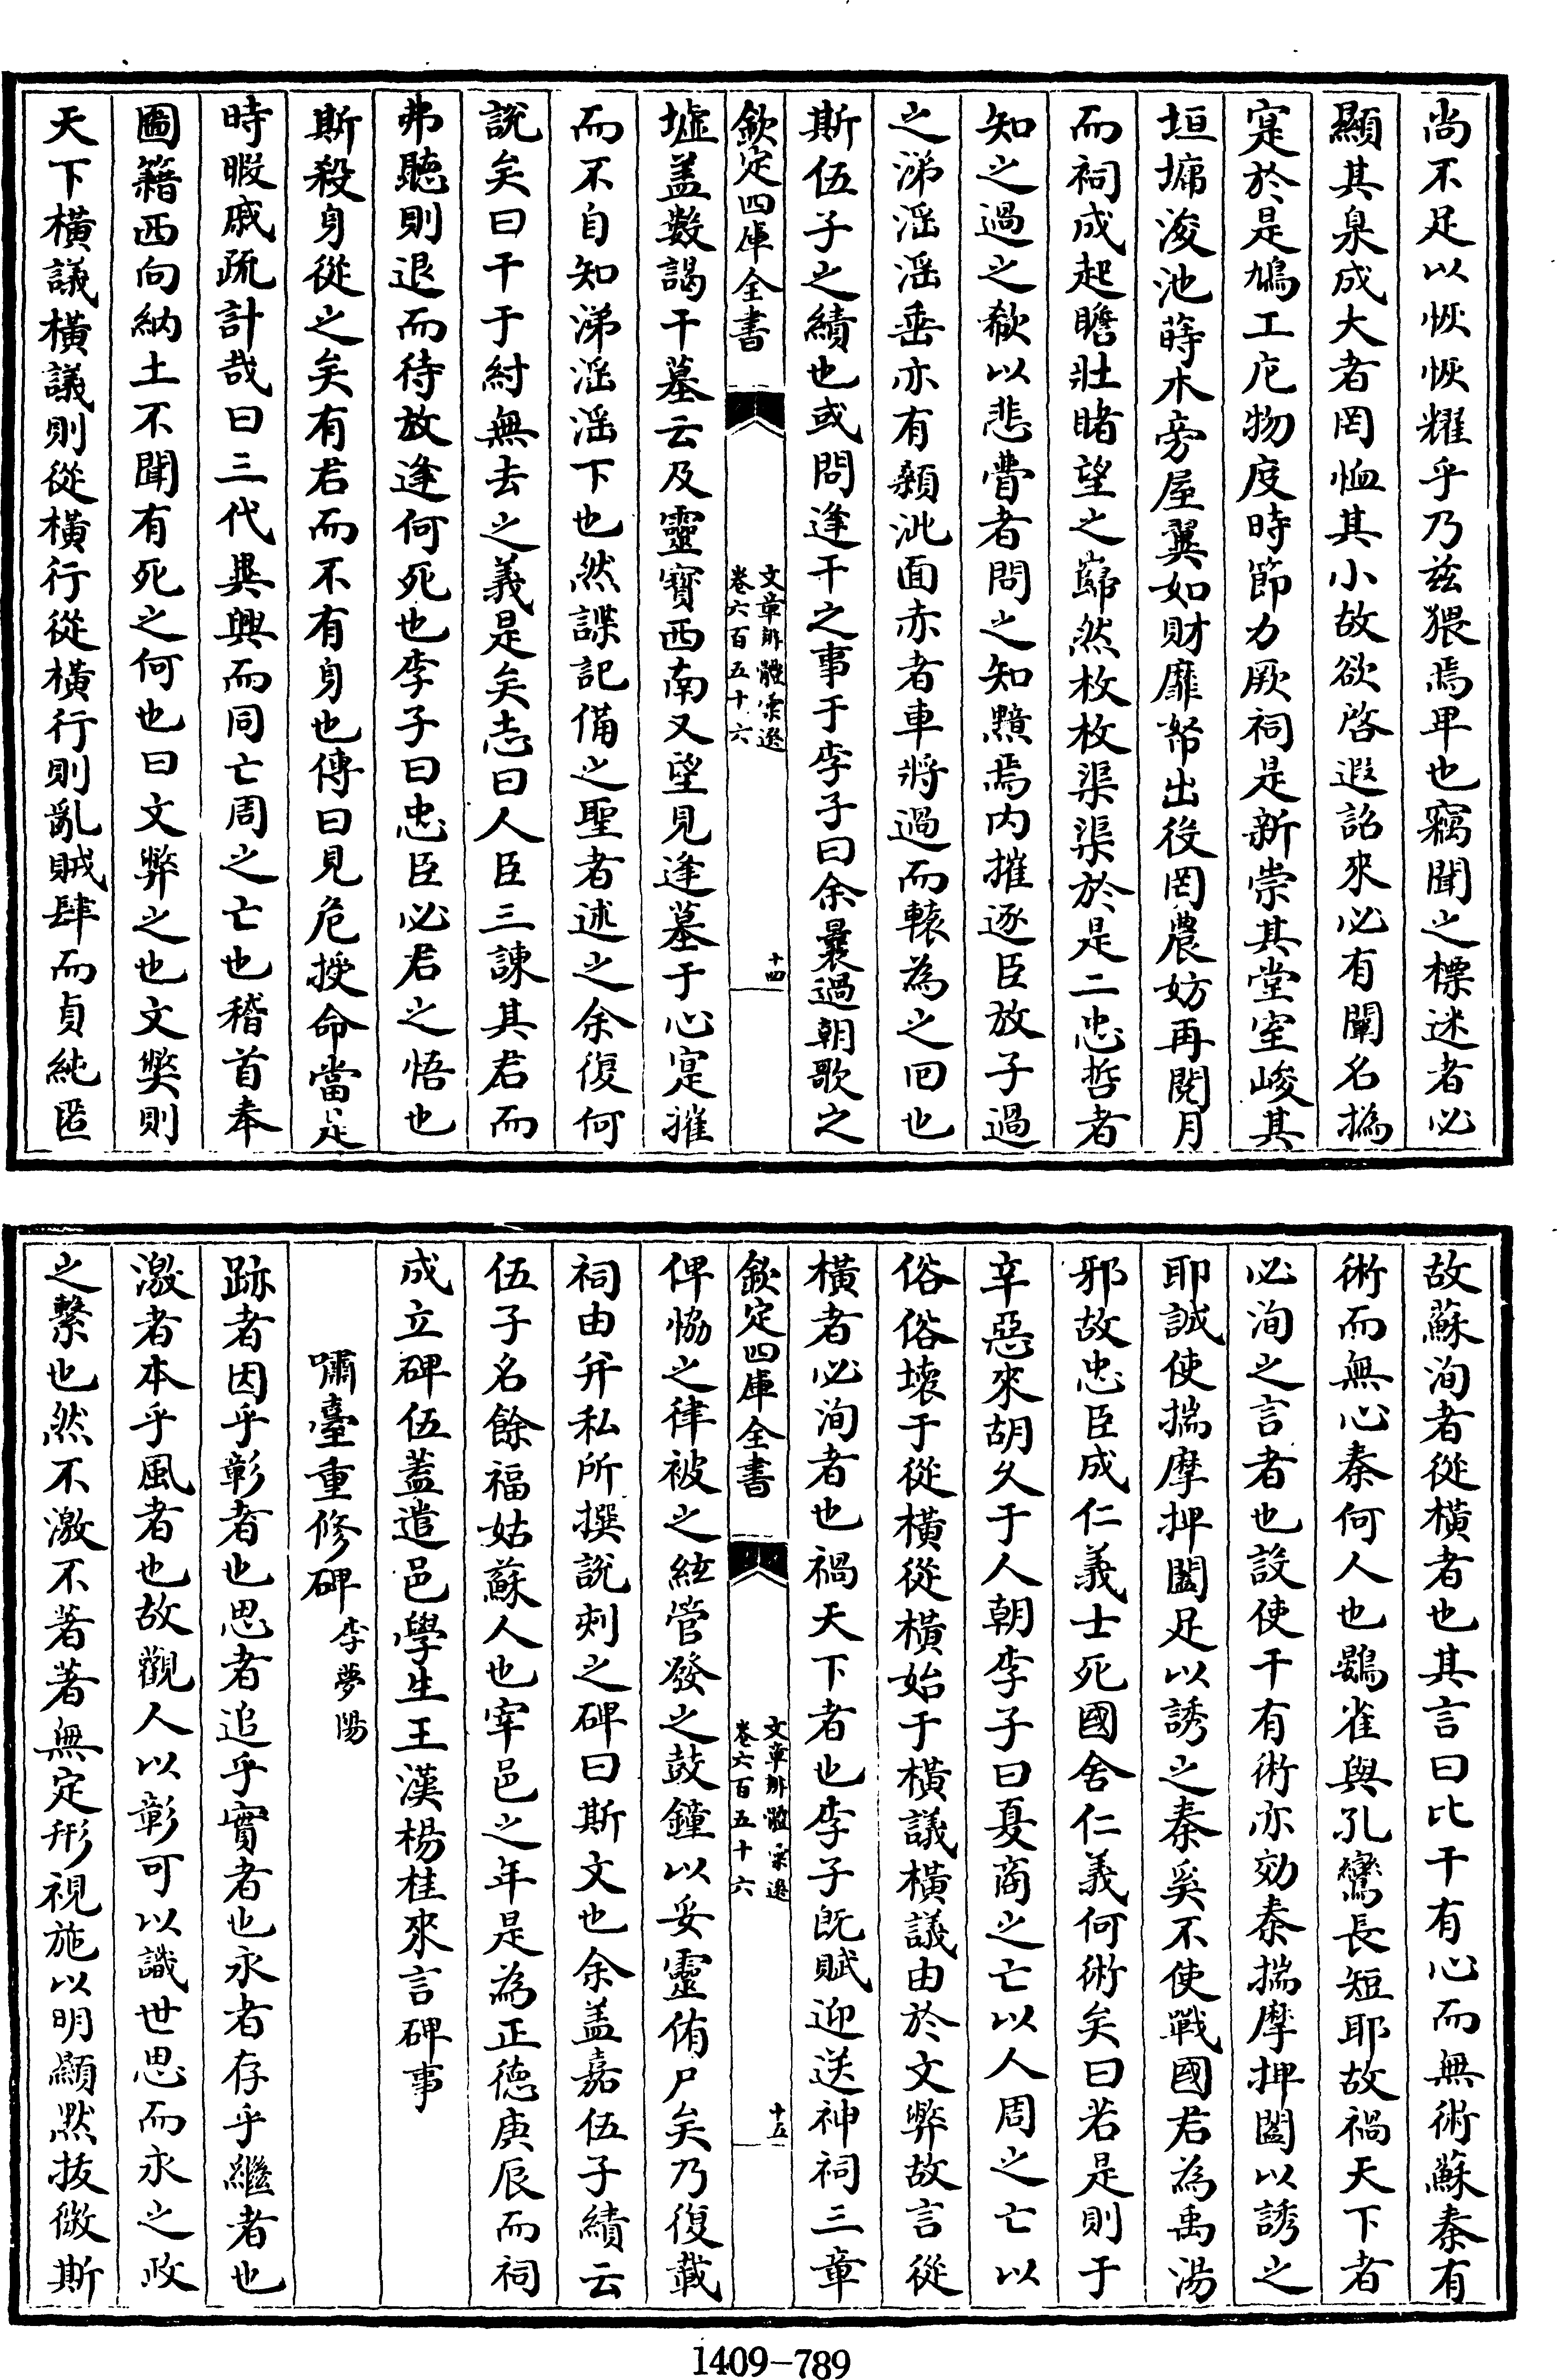 尚不足以恢恢耀乎乃兹猥焉卑也竊聞之標迷者必
顯其泉成大者罔恤其小故欲啓遐詔來必有闡名撝
寔於是鳩工庀物度時節力厥祠是新崇其堂室峻其
垣墉浚池蒔木旁屋翼如財靡帑出役罔農妨再閱月
而祠成起瞻壯睹望之巋然枚枚渠渠於是二忠哲者
知之過之欷以悲瞢者問之知黯焉内摧逐臣放子過
之涕滛滛垂亦有顙泚面赤者車將過而轅為之囘也
斯伍子之績也或問逢干之事于李子曰余曩過朝歌之
欽定四庫全書
文章辨體彚選
卷六百五十六
十四
墟盖數謁干墓云及靈寳西南又望見逢墓于心寔摧
而不自知涕滛滛下也然諜記備之聖者述之余復何
說矣曰干于紂無去之義是矣志曰人臣三諫其君而
弗聽則退而待放逢何死也李子曰忠臣必君之悟也
斯殺身從之矣有君而不有身也傳曰見危授命當是
時暇戚疏計哉曰三代異興而同亡周之亡也稽首奉
圖籍西向納土不聞有死之何也曰文弊之也文獘則
天下橫議橫議則從橫行從橫行則亂賊肆而貞純匿
故蘇洵者從橫者也其言曰比干有心而無術蘇秦有
術而無心秦何人也鷃雀與孔鸞長短耶故禍天下者
必洵之言者也設使干有術亦効秦揣摩押闔以誘之
耶誠使揣摩押闔足以誘之秦奚不使戰國君為禹湯
邪故忠臣成仁義士死國舍仁義何術矣曰若是則于
辛惡來胡久于人朝李子曰夏商之亡以人周之亡以
俗俗壊于從橫從橫始于橫議橫議由於文弊故言從
橫者必洵者也禍天下者也李子旣賦迎送神祠三章
欽定四庫全書
文章辨體彚選
卷六百五十六
十五
俾恊之律被之絃管發之鼓鐘以妥靈侑尸矣乃復載
祠由并私所撰說刻之碑曰斯文也余盖嘉伍子績云
伍子名餘福姑蘇人也宰邑之年是為正德庚辰而祠
成立碑伍蓋遣邑學生王漢楊桂來言碑事
嘯臺重修碑 李夢陽
跡者因乎彰者也思者追乎實者也永者存乎繼者也
激者本乎風者也故觀人以彰可以識世思而永之政
之繫也然不激不著著無定形視施以明顯黙抜微斯
1409-789